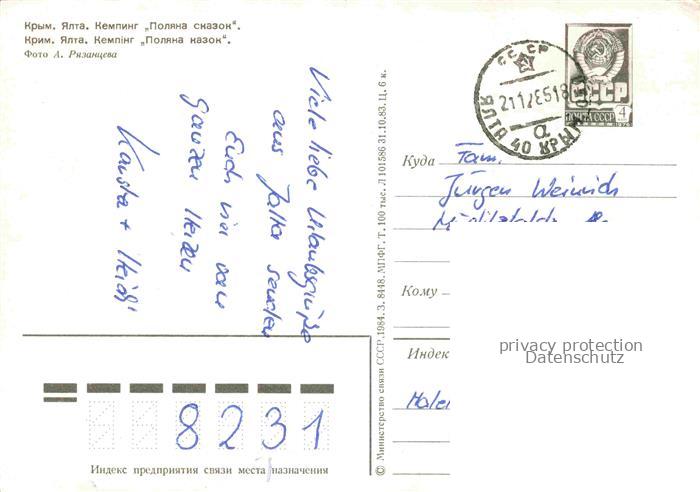 Крым. Ялта. Кемпинг „Поляна сказок“.
Крим. Ялта. Кемпінг „Поляна казок“.
Фото А. Рязанцева
Viele liebe Urlaubsgrüße
aus Jalta senden
Euch wir von
ganzen Herzen
+ Heidi
© Министерство связи СССР, 1984. З. 8448. МПФГ, Т. 100 тыс. Л 101586 31.10.83. Ц. 6 к.
СССР
21 12 85 18
ЯЛТА 40 КРЫМ
а
СССР
ПОЧТА СССР 4
Куда Fam.
Jürgen Weinrich
Кому
Индекс
privacy protection
Datenschutz
8231
Индекс предприятия связи места назначения